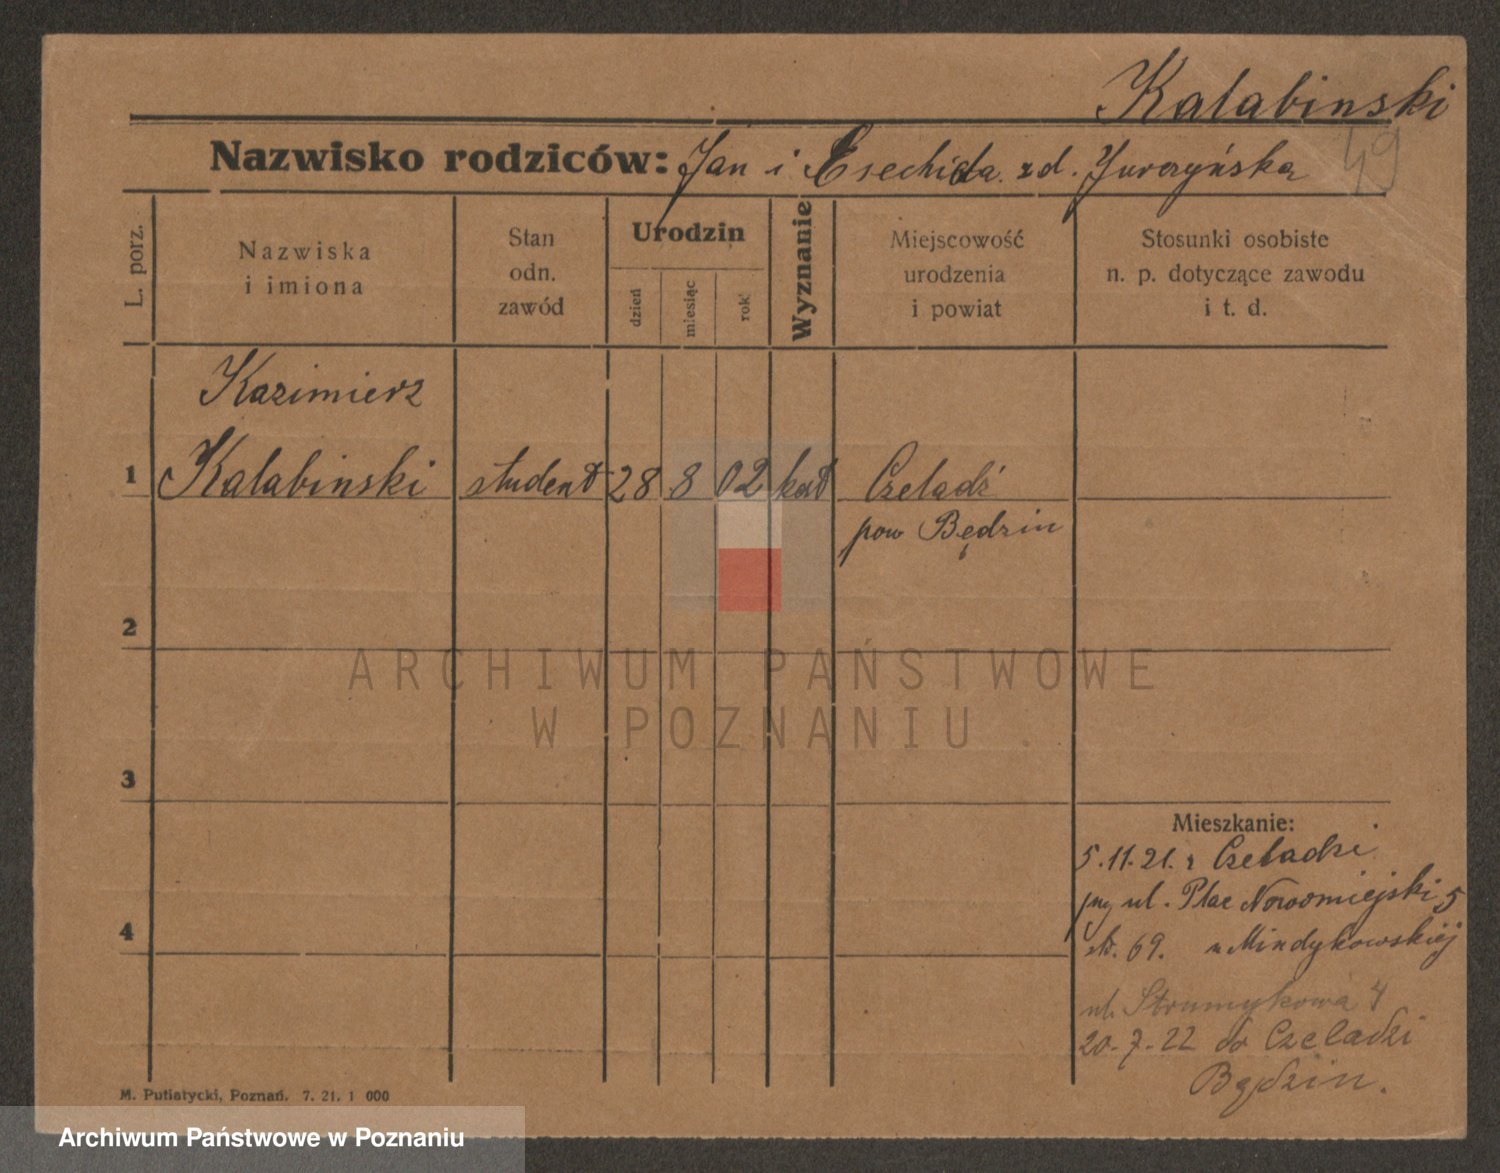 Kalabinski
49
Nazwisko rodziców: Jan i Esechida zd. Jurczyńska
L. porz.
Nazwiska
i imiona
Stan
odn.
zawód
Urodzin
dzień
miesiąc
rok
Wyznanie
Miejscowość
urodzenia
i powiat
Stosunki osobiste
n. p. dotyczące zawodu
i t. d.
Kazimierz
1 Kalabinski student 28 8 02 kat Czeladź
pow Będzin
2
3
4
ARCHIWUM PAŃSTWOWE
W POZNANIU.
Mieszkanie:
5.11.21. z Czeladzi
ul. Plac Nowomiejski 5
69. u Mindykowskiej
ul. Strumykowa 4
20-7-22 do Czeladzi
Będzin.
M. Putiatycki, Poznań. 7. 21. 1 000
Archiwum Państwowe w Poznaniu